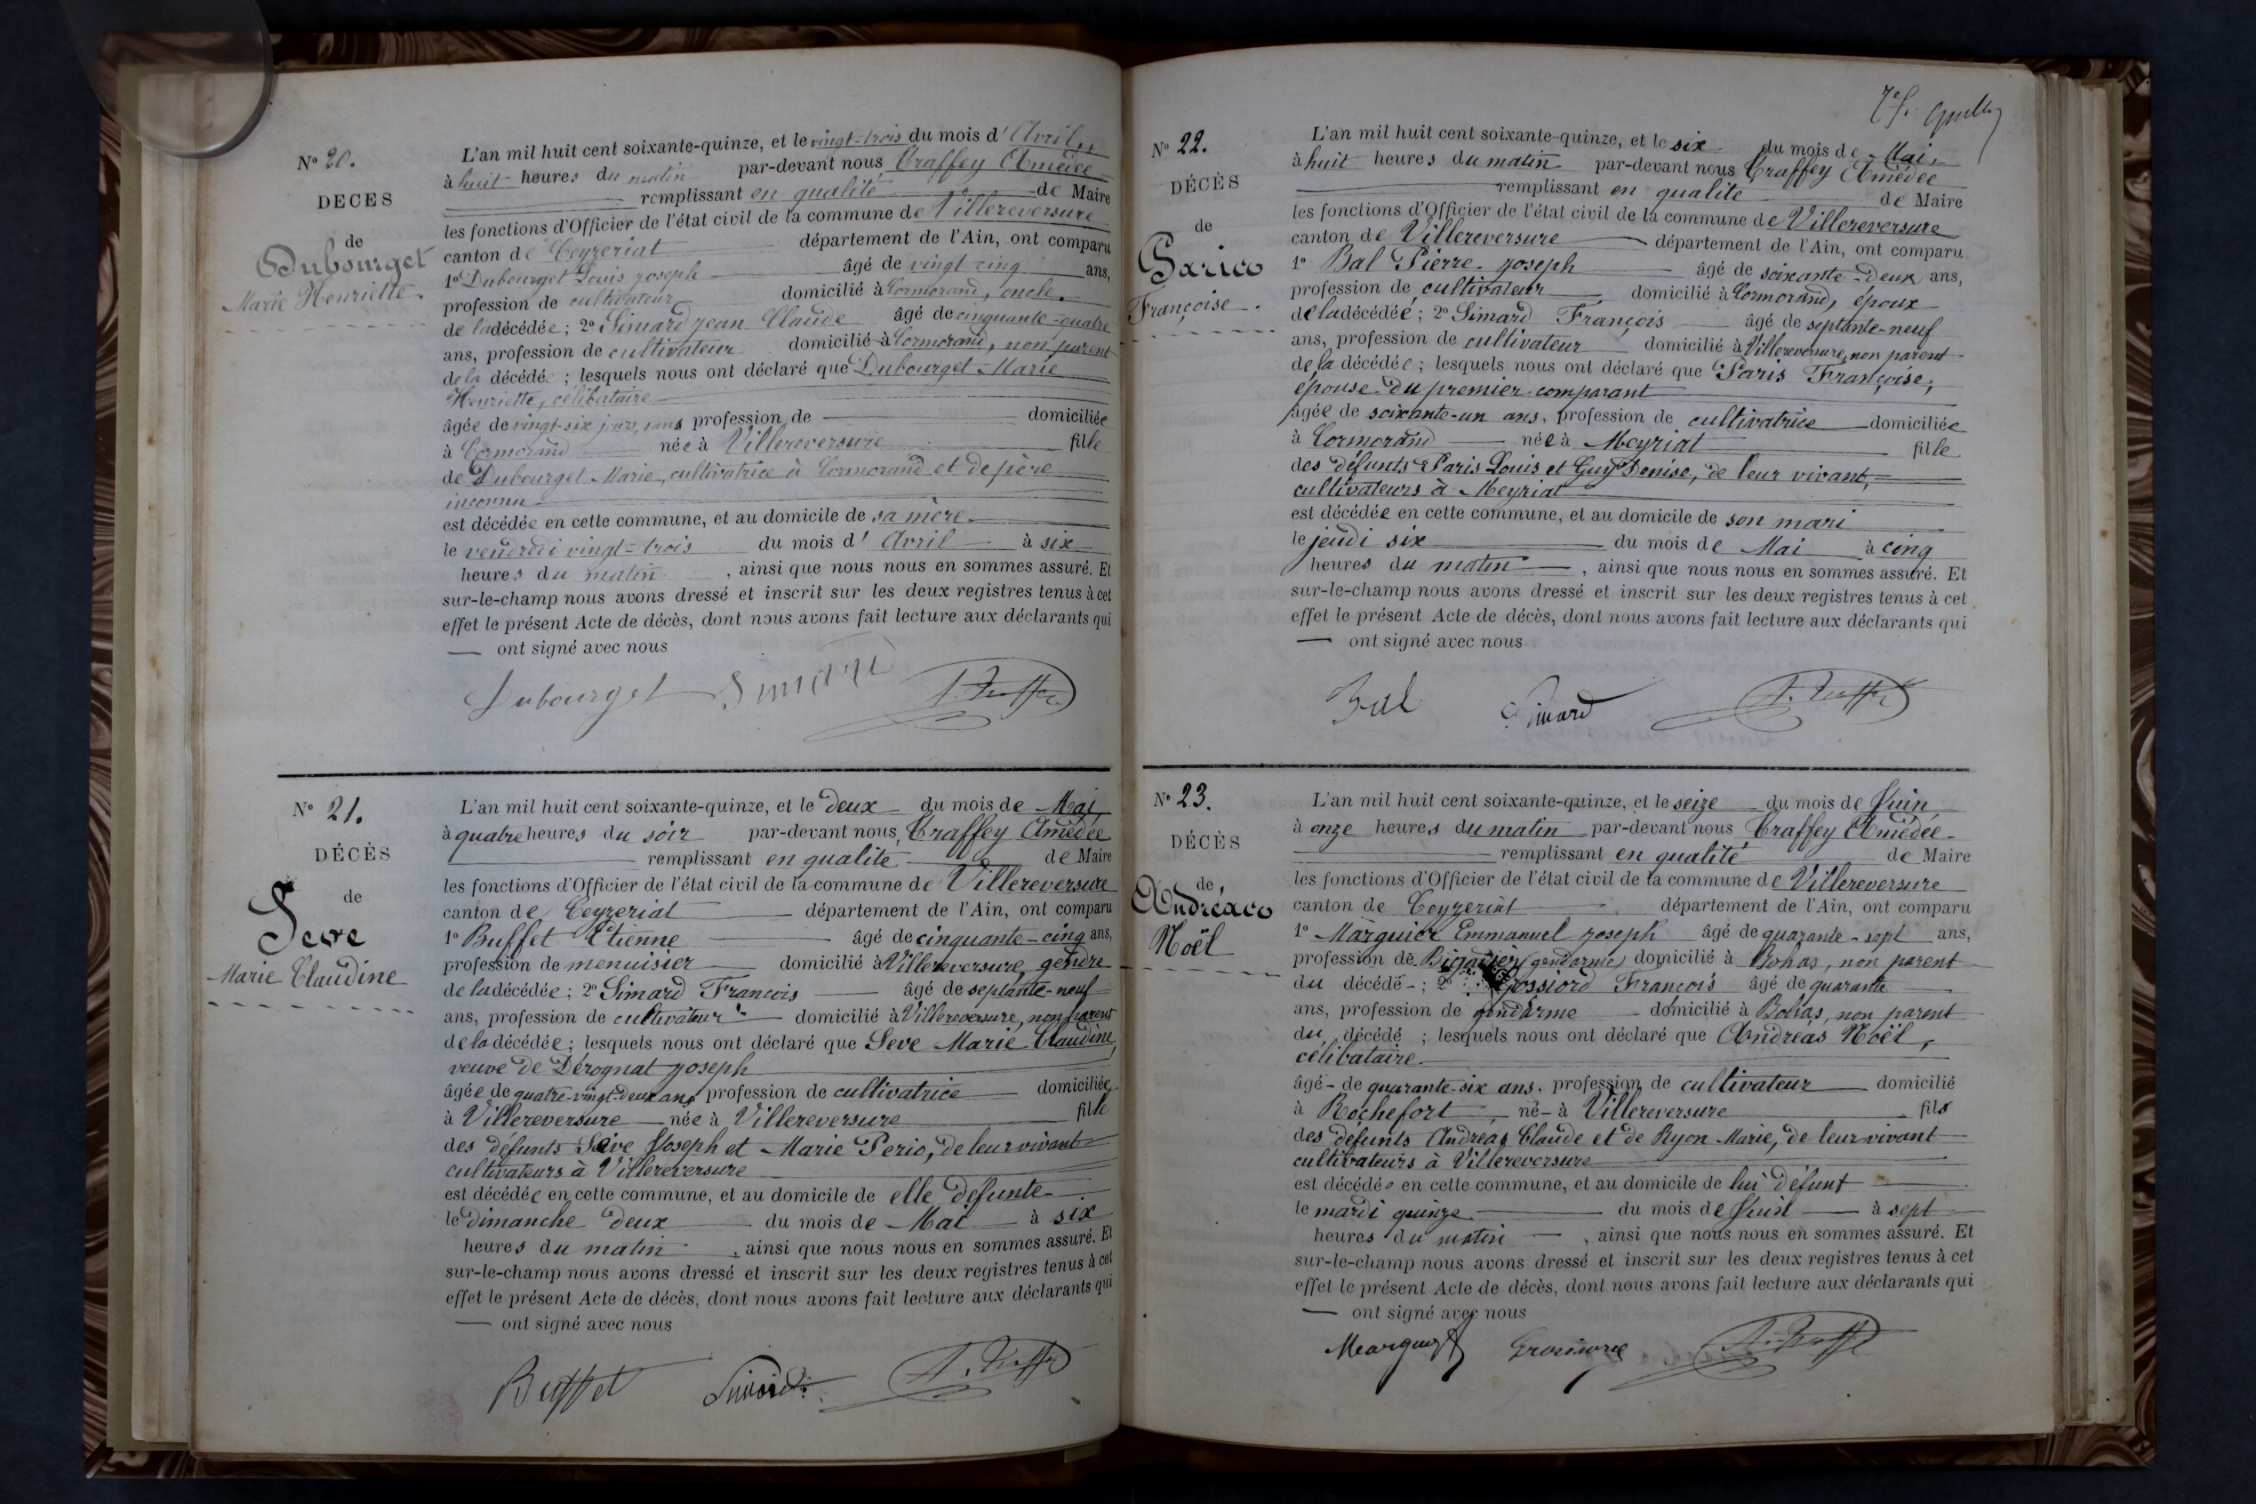 N° 20.
DÉCÈS
de
Dubourget
Marie Henriette.
L'an mil huit cent soixante-quinze, et le vingt-trois du mois d'Avril
à huit heures du matin par-devant nous Craffey Amédée
remplissant en qualité de Maire
les fonctions d'Officier de l'état civil de la commune de Villereversure
canton de Ceyzeriat département de l'Ain, ont comparu
1° Dubourget Louis Joseph âgé de vingt cinq ans,
profession de cultivateur domicilié à Cormorand, oncle
de la décédée ; 2° Simard Jean Claude âgé de cinquante-quatre
ans, profession de cultivateur domicilié à Cormorand, non parent
de la décédée ; lesquels nous ont déclaré que Dubourget Marie
Henriette, célibataire
âgée de vingt-six jours, sans profession de domiciliée
à Cormorand née à Villereversure fille
de Dubourget Marie, cultivatrice à Cormorand et de père
inconnu
est décédée en cette commune, et au domicile de sa mère
le vendredi vingt-trois du mois d'Avril à six
heures du matin, ainsi que nous nous en sommes assuré. Et
sur-le-champ nous avons dressé et inscrit sur les deux registres tenus à cet
effet le présent Acte de décès, dont nous avons fait lecture aux déclarants qui
— ont signé avec nous
Dubourget Simard
N° 21.
DÉCÈS
de
Seve
Marie Claudine
L'an mil huit cent soixante-quinze, et le deux du mois de Mai,
à quatre heures du soir par-devant nous Craffey Amédée
remplissant en qualité de Maire
les fonctions d'Officier de l'état civil de la commune de Villereversure
canton de Ceyzeriat département de l'Ain, ont comparu
1° Buffet Etienne âgé de cinquante-cinq ans,
profession de menuisier domicilié à Villereversure, gendre
de la décédée ; 2° Simard François âgé de septante-neuf
ans, profession de cultivateur domicilié à Villereversure, non parent
de la décédée ; lesquels nous ont déclaré que Seve Marie Claudine,
veuve de Dérognat Joseph
âgée de quatre-vingt-deux ans, profession de cultivatrice domiciliée
à Villereversure née à Villereversure fille
des défunts Seive Joseph et Marie Perio, de leur vivant
cultivateurs à Villereversure
est décédée en cette commune, et au domicile de elle défunte
le dimanche deux du mois de Mai à six
heures du matin, ainsi que nous nous en sommes assuré. Et
sur-le-champ nous avons dressé et inscrit sur les deux registres tenus à cet
effet le présent Acte de décès, dont nous avons fait lecture aux déclarants qui
— ont signé avec nous
Buffet Simard
7e f.
N° 22.
DÉCÈS
de
Paris
Françoise.
L'an mil huit cent soixante-quinze, et le six du mois de Mai
à huit heures du matin par-devant nous Craffey Amédée
remplissant en qualité de Maire
les fonctions d'Officier de l'état civil de la commune de Villereversure
canton de Villereversure département de l'Ain, ont comparu
1° Bal Pierre-Joseph âgé de soixante-deux ans,
profession de cultivateur domicilié à Cormorand, époux
de la décédée ; 2° Simard François âgé de septante-neuf
ans, profession de cultivateur domicilié à Villereversure, non parent
de la décédée ; lesquels nous ont déclaré que Paris Françoise,
épouse du premier comparant
âgée de soixante-un ans, profession de cultivatrice domiciliée
à Cormorand née à Meyriat fille
des défunts Paris Louis et Guy Denise, de leur vivant,
cultivateurs à Meyriat
est décédée en cette commune, et au domicile de son mari
le jeudi six du mois de Mai à cinq
heures du matin, ainsi que nous nous en sommes assuré. Et
sur-le-champ nous avons dressé et inscrit sur les deux registres tenus à cet
effet le présent Acte de décès, dont nous avons fait lecture aux déclarants qui
— ont signé avec nous
Bal Simard
N° 23.
DÉCÈS
de
Andréas
Noël
L'an mil huit cent soixante-quinze, et le seize du mois de Juin
à onze heures du matin par-devant nous Craffey Amédée
remplissant en qualité de Maire
les fonctions d'Officier de l'état civil de la commune de Villereversure
canton de Ceyzeriat département de l'Ain, ont comparu
1° Marguier Emmanuel Joseph âgé de quarante-sept ans,
profession de (gendarme) domicilié à Bohas, non parent
du décédé ; 2° Grossiord François âgé de quarante
ans, profession de gendarme domicilié à Bohas, non parent
du décédé ; lesquels nous ont déclaré que Andréas Noël,
célibataire
âgé de quarante-six ans, profession de cultivateur domicilié
à Rochefort, né à Villereversure fils
des défunts Andréas Claude et de Ryon Marie, de leur vivant
cultivateurs à Villereversure
est décédé en cette commune, et au domicile de lui défunt
le mardi quinze du mois de Juin à sept
heures du matin, ainsi que nous nous en sommes assuré. Et
sur-le-champ nous avons dressé et inscrit sur les deux registres tenus à cet
effet le présent Acte de décès, dont nous avons fait lecture aux déclarants qui
— ont signé avec nous